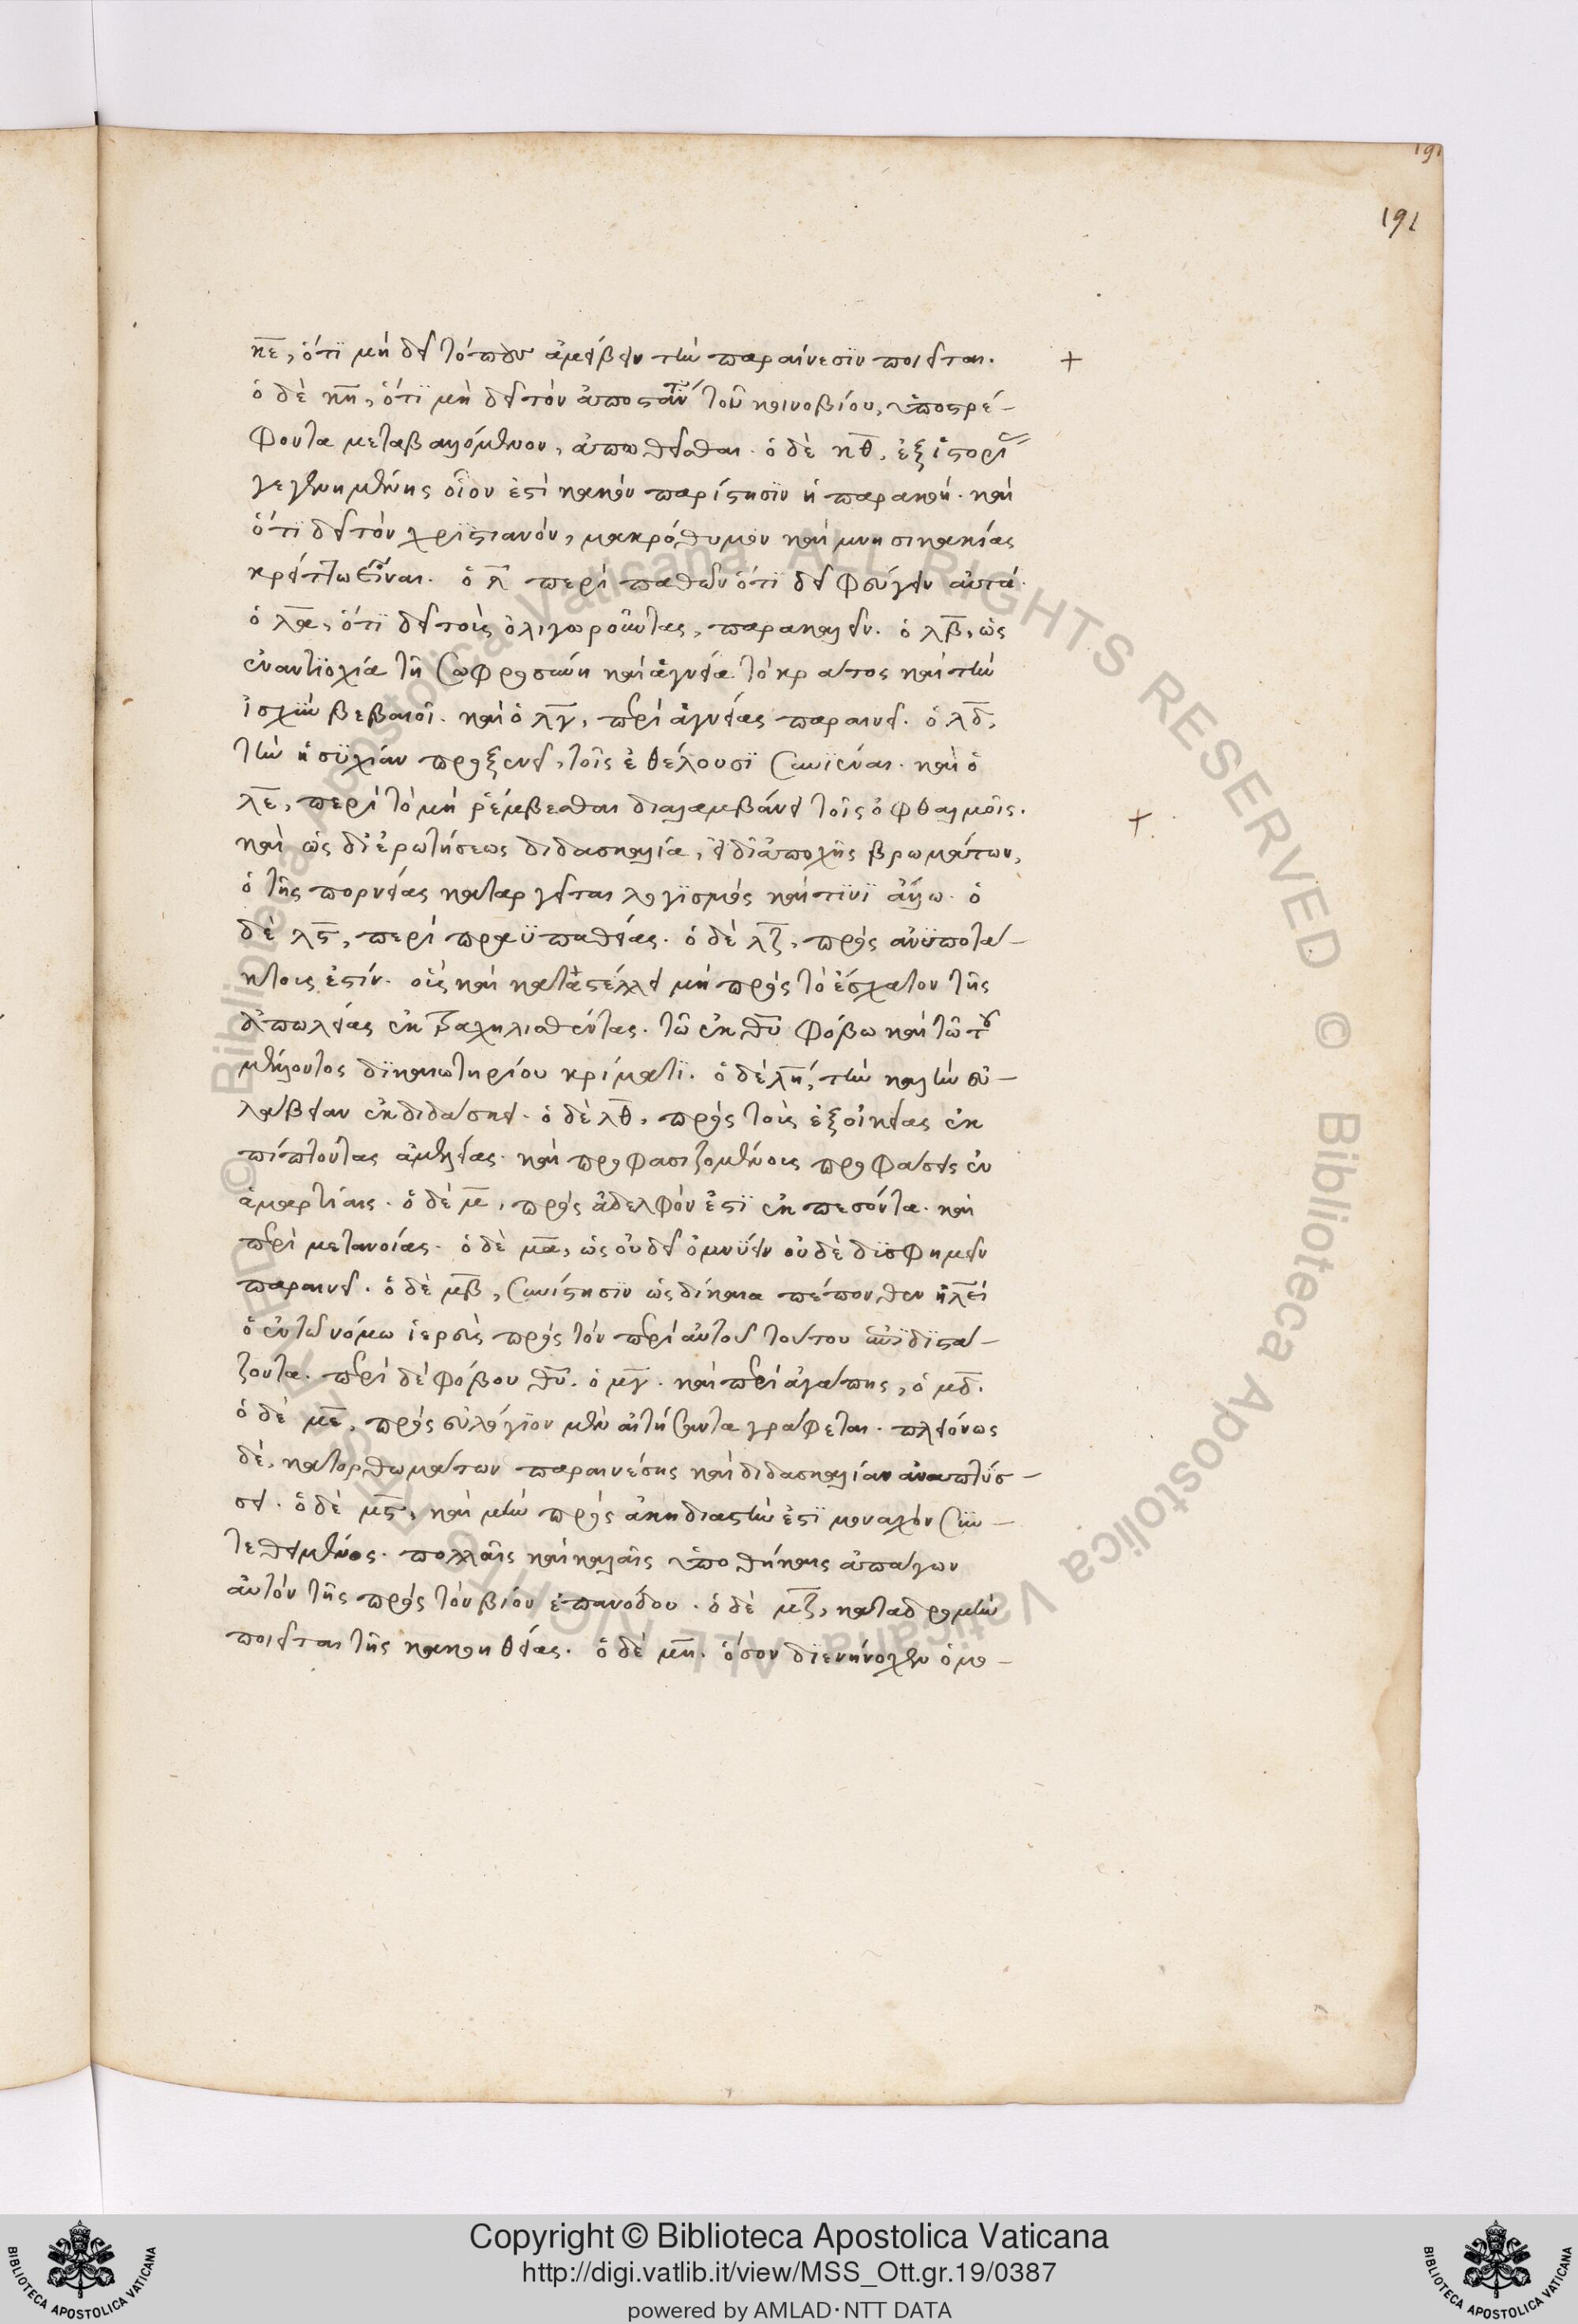 191
191
κε, ὅτϊ μὴ δεῖ τόπου ἀμείβειν τὴν παραίνεσϊν ποιεῖται.
ὁ δὲ κη, ὅτϊ μὴ δεῖ τὸν ἀποστάντα τοῦ κοινοβίου, ὑποστρέ-
φοντα μεταβαλόμενον, ἀπωθεῖσθαι. ὁ δὲ κθ, ἐξ ἱστορί
γεγενημένης οἷον ἐστὶ κακὸν παρίστησϊν ἡ παρακοή. καὶ
ὅτϊ δεῖ τὸν χρϊστιανόν, μακρόθυμον καὶ μνησικακίας
κρείττω εἶναι. ὁ λ περὶ παθῶν ὅτϊ δεῖ φεύγειν αὐτά.
ὁ λα, ὅτϊ δεῖ τοὺς ὀλιγωροῦντας, παρακαλεῖν. ὁ λβ, ὡς
ἐναντϊολγία τῆ σωφροσύνη καὶ ἁγνεία τὸ κράτος καὶ τὴν
ἰσχὺν βεβαιοῖ. καὶ ὁ λγ, περὶ ἁγνείας παραινεῖ. ὁ λδ,
τὴν ἡσϋχίαν προξενεῖ, τοῖς ἐθέλουσϊ συνϊέναι. καὶ ὁ
λε, περὶ τὸ μὴ ῥέμβεσθαι διαλαμβάνει τοῖς ὀφθαλμοῖς.
καὶ ὡς δι' ἐρωτήσεως διδασκαλία, εἰ δι' ἀποχῆς βρωμάτων,
ὁ τῆς πορνείας καταργεῖται λογϊσμὸς καὶ τϊνϊ ἄλλω. ὁ
δὲ λς, περὶ πραϋπαθείας. ὁ δὲ λζ, πρὸς ἀνϋποτά-
κτους ἐστίν. οὓς καὶ καταστέλλει μὴ πρὸς τὸ ἔσχατον τῆς
ἀπωλείας ἐκτραχηλισθέντας. τῶ ἐκ θυ φόβω καὶ τῶ τοῦ
μέλλοντος δϊκαιωτηρίου κρίματϊ. ὁ δὲ λη, τὴν καλὴν εὐ-
λάβειαν ἐκδιδάσκει. ὁ δὲ λθ, πρὸς τοὺς ἐξ οἰκείας ἐκ
πίπτοντας ἀμελείας. καὶ προφασιζομένους προφάσεις ἐν
ἁμαρτίαις. ὁ δὲ μ, πρὸς ἀδελφὸν ἐστϊ ἐκπεσόντα. καὶ
περὶ μετανοίας. ὁ δὲ μα, ὡς οὐ δεῖ ὀμνϋειν οὐδὲ δϋσφημεῖν
παραινεῖ. ὁ δὲ μβ, συνίστησϊν ὡς δίκαια πέπονθεν ἠλεὶ
ὁ ἐν τῶ νόμω ἱερεὺς πρὸς τὸν περὶ αὐτοῦ τούτου ἀμφϊδϊστά-
ζοντα. περὶ δὲ φόβου θυ. ὁ μγ. καὶ περὶ ἀγάπης, ὁ μδ.
ὁ δὲ με, πρὸς εὐλόγϊον μὲν αἰτήσαντα γράφεται. πλειόνως
δὲ, κατορθωμάτων παραινέσεις καὶ διδασκαλίαν ἀναπτύσ-
σει. ὁ δὲ μς, καὶ μὴν πρὸς ἀκηδιαστὴν ἐστϊ μοναχὸν συν-
τεθειμένος. πολλαῖς καὶ καλαῖς ὑποθήκαις ἀπάγων
αὐτὸν τῆς πρὸς τὸν βίον ἐπανόδου. ὁ δὲ μζ, καταδρομὴν
ποιεῖται τῆς κακοηθείας. ὁ δὲ μη. ὅσον δϊενήνοχεν ὁ μο-
Copyright © Biblioteca Apostolica Vaticana
http://digi.vatlib.it/view/MSS_Ott.gr.19/0387
powered by AMLAD·NTT DATA